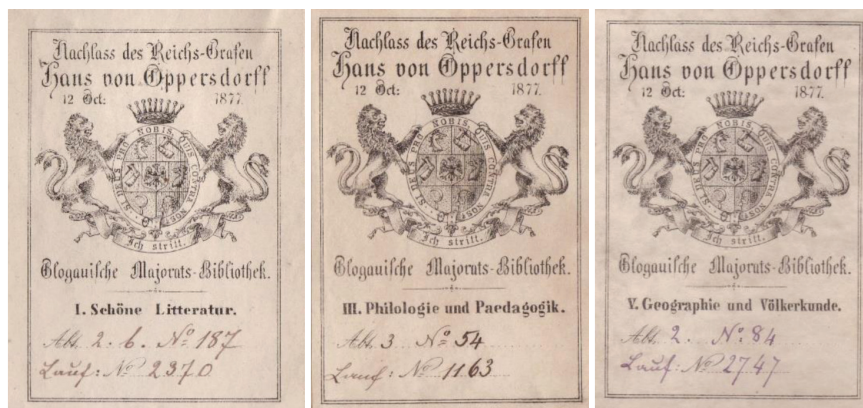 Nachlass des Reichs-Grafen
Hans von Oppersdorff
12 Oct: 1877.
SI DEUS PRO NOBIS QUIS CONTRA NOS?
Ich stritt.
Glogauische Majorats-Bibliothek.
I. Schöne Litteratur.
Abt. 2. b. No 187
Lauf: No 2370
Nachlass des Reichs-Grafen
Hans von Oppersdorff
12 Oct: 1877.
SI DEUS PRO NOBIS QUIS CONTRA NOS?
Ich stritt.
Glogauische Majorats-Bibliothek.
III. Philologie und Paedagogik.
Abt. 3 No 54
Lauf: No 1163
Nachlass des Reichs-Grafen
Hans von Oppersdorff
12 Oct: 1877.
SI DEUS PRO NOBIS QUIS CONTRA NOS?
Ich stritt.
Glogauische Majorats-Bibliothek.
V. Geographie und Völkerkunde.
Abt. 2. No: 84
Lauf: No 2747